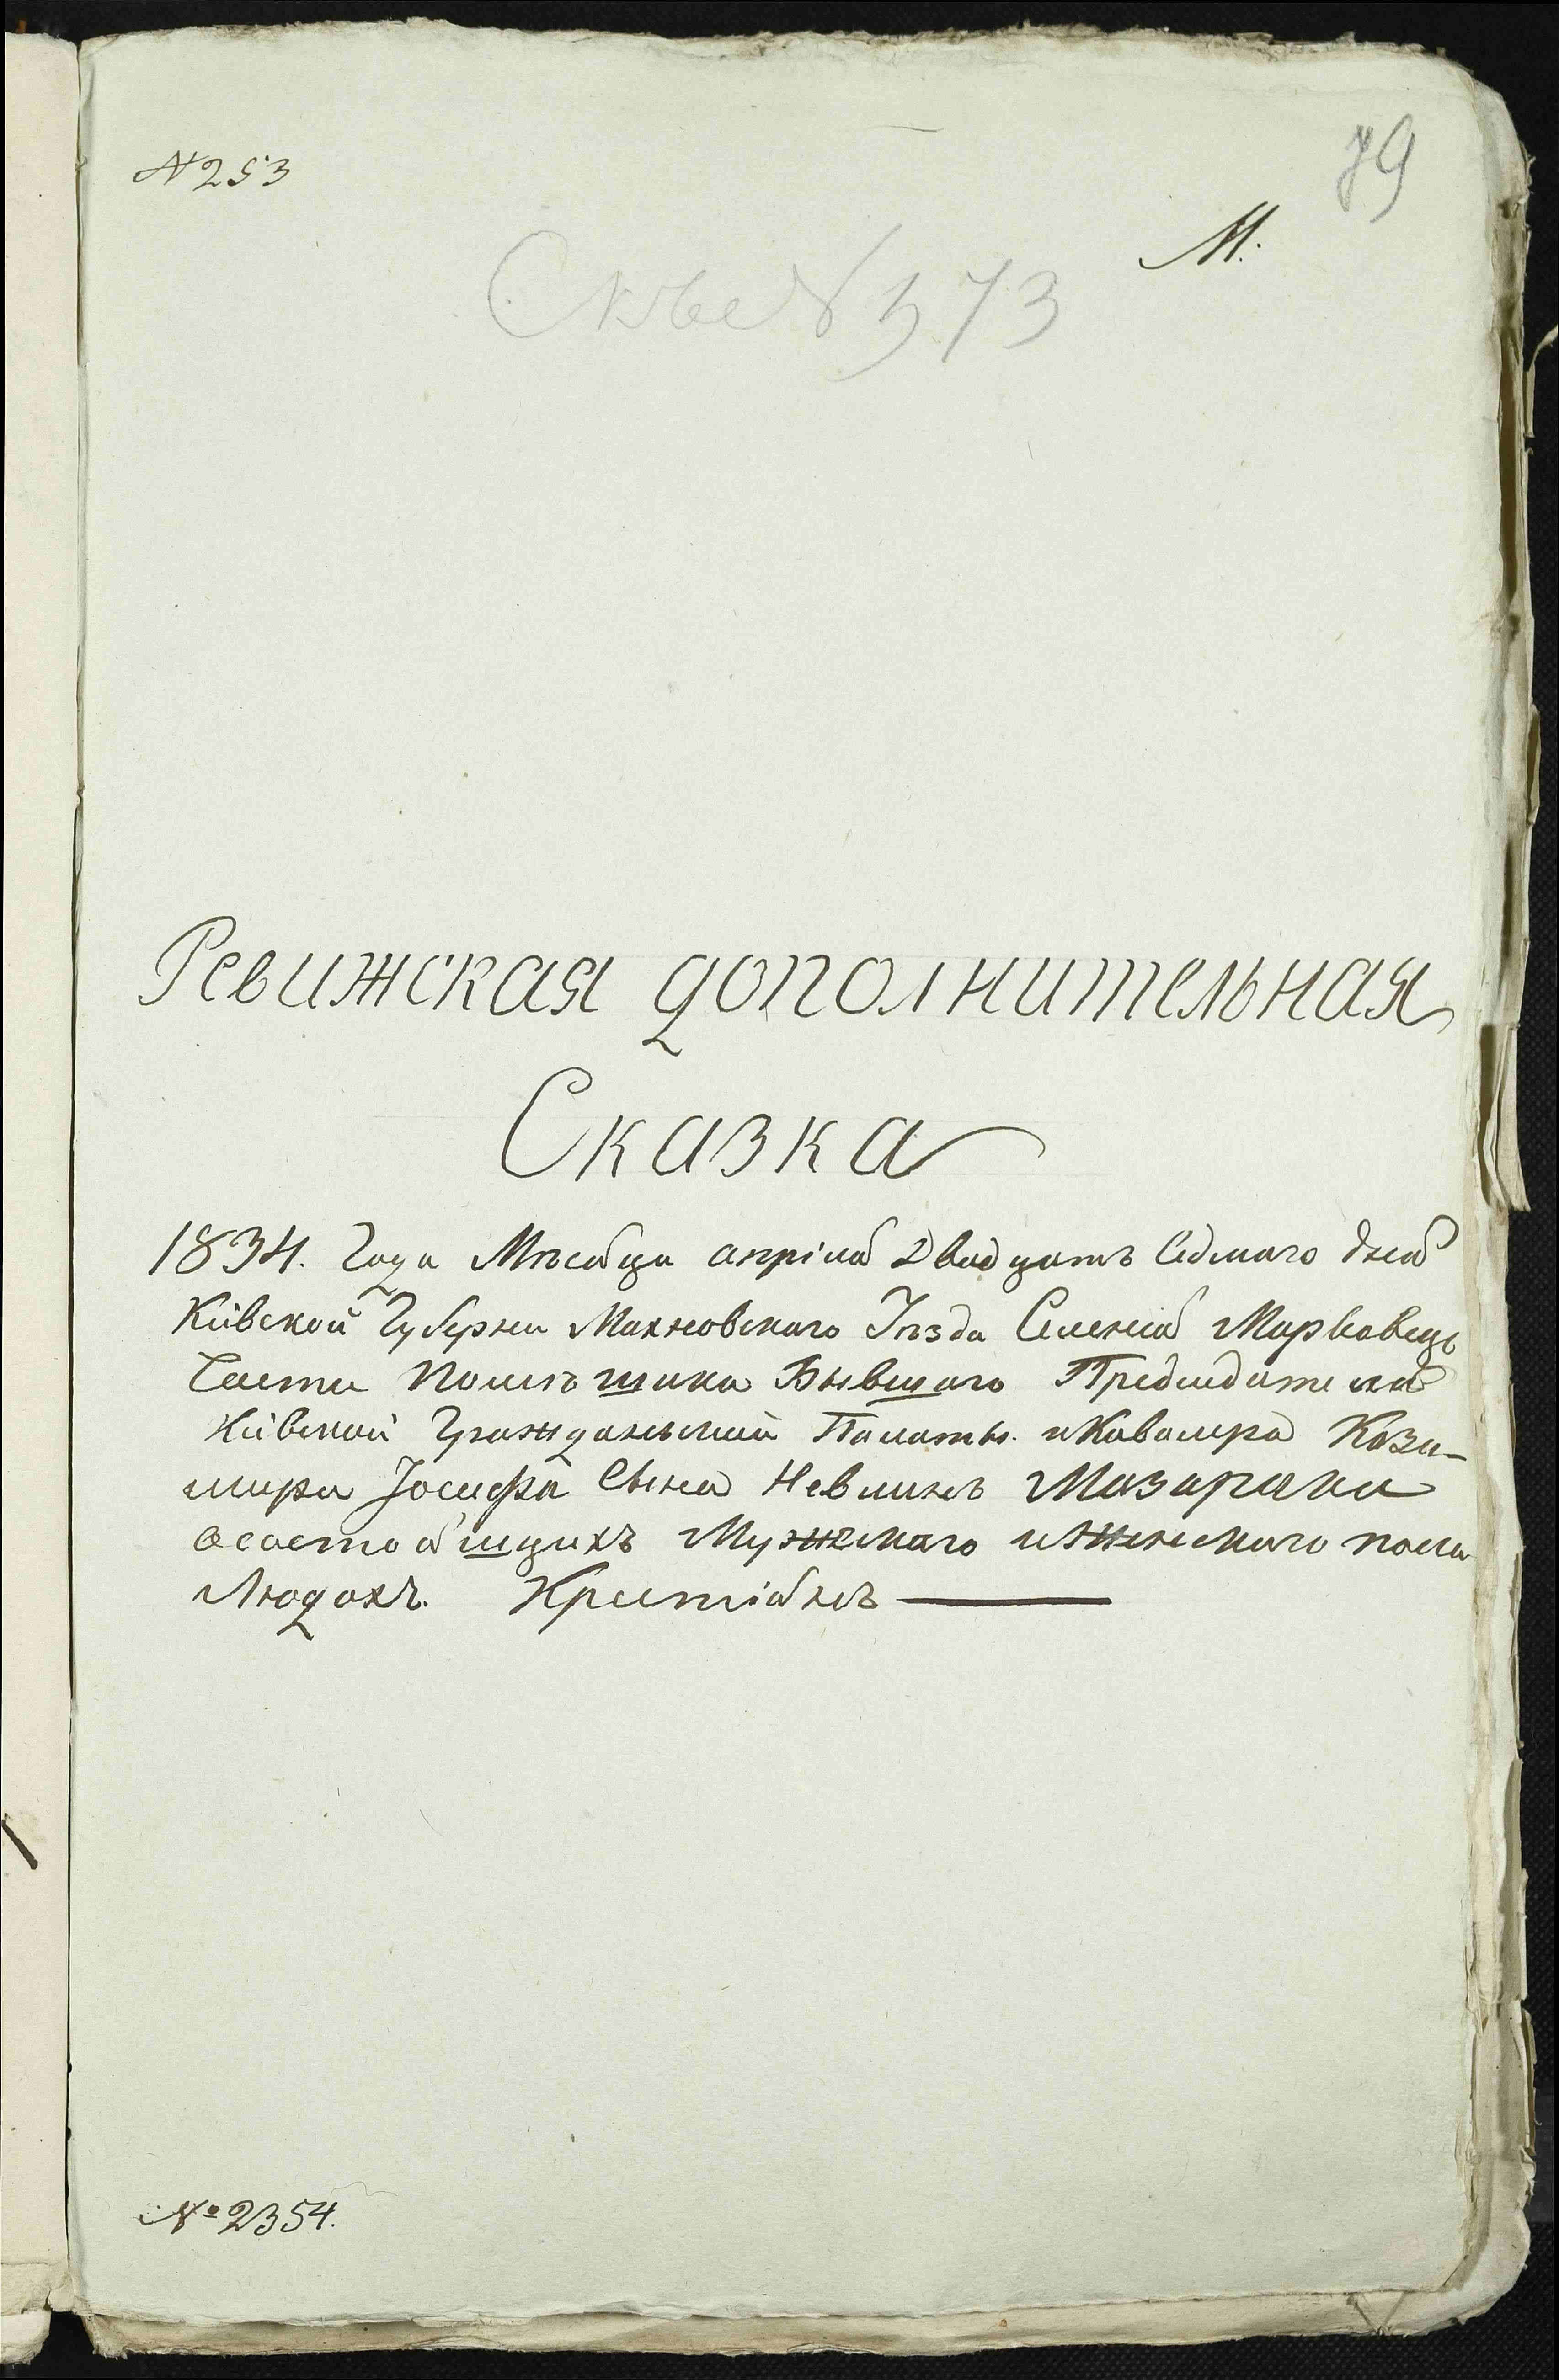 № 253
79
М.
№ 573
Ревижская дополнительная
Сказка
1834. Года Мѣсяца апріля Двадцать Седмаго дня
Кіивской Губерни Махновского Уѣзда Селенія Марковецъ
Части Помѣщика Бывшаго Председателя
Кіивской Гражданьской Палаты и Кавалера Кази-
мира Јосифа Сына Невлинъ Мазараки
о состоящихъ Мужескаго и Женескаго пола
Людахъ. Крестіянъ —
№ 2354.